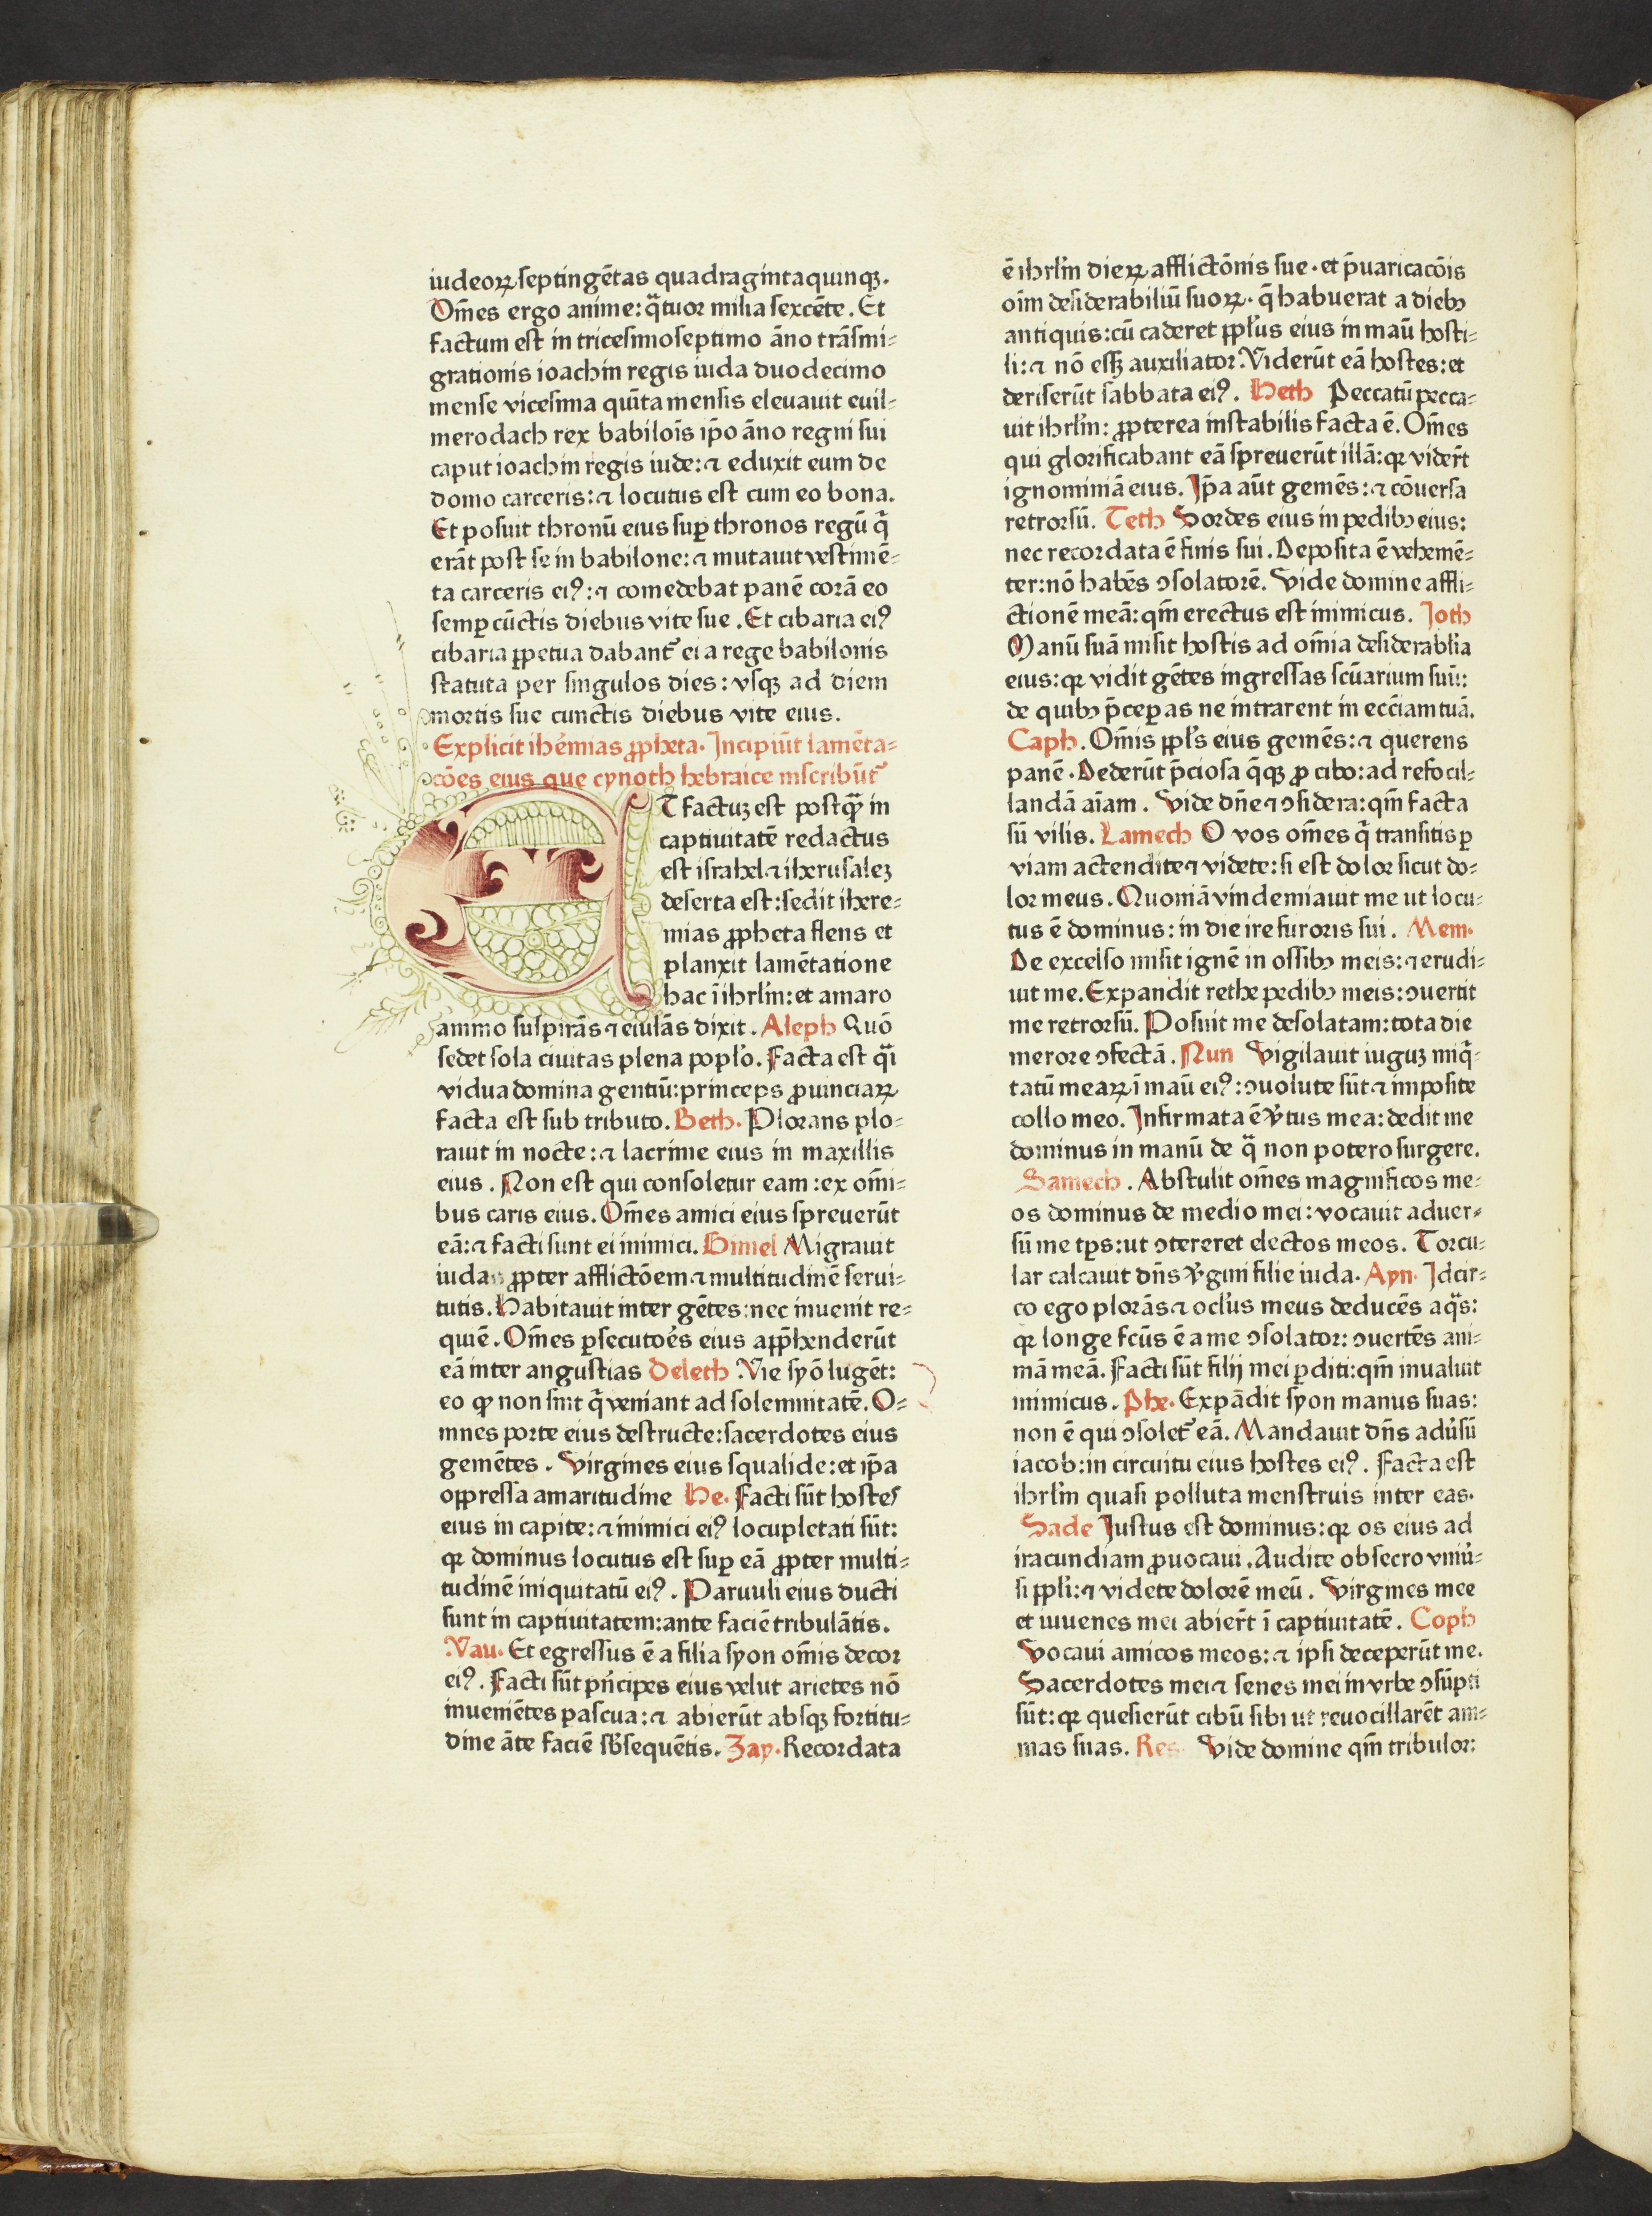 iudeoꝝ septingētas quadragintaquinqꝫ.
Om̄es ergo anime: q̄tuor milia sexcēte. Et
factum est in tricesimoseptimo āno trāsmi⸗
grationis ioachin regis iuda duodecimo
mense vicesima quīta mensis eleuauit euil⸗
merodach rex babilois̄ ip̄o āno regni sui
caput ioachin regis iude: ⁊ eduxit eum de
domo carceris: ⁊ locutus est cum eo bona.
Et posuit thronū eius suꝑ thronos regū q̄
erāt post se in babilone: ⁊ mutauit vestimē⸗
ta carceris eiꝰ: ⁊ comedebat panē corā eo
semꝑ cūctis diebus vite sue. Et cibaria eiꝰ
cibaria ꝑpetua dabant᷑ ei a rege babilonis
statuta per singulos dies: vsqꝫ ad diem
mortis sue cunctis diebus vite eius.
Explicit iheᷣmias ꝓpheta. Incipiūt lamēta⸗
cōes eius que cynoth hebraice inscribūt᷑
ET factuꝫ est postq̄ꝫ in
captiuitatē redactus
est israhel ⁊ iherusaleꝫ
deserta est: sedit ihere⸗
mias ꝓpheta flens et
planxit lamētatione
hac ī ihrlm̄: et amaro
animo suspirās ⁊ eiulās dixit. Aleph Quō
sedet sola ciuitas plena popl̄o. Facta est q̄i
vidua domina gentiū: princeps ꝓuinciaꝝ
facta est sub tributo. Beth. Plorans plo⸗
rauit in nocte: ⁊ lacrime eius in maxillis
eius. Non est qui consoletur eam: ex om̄i⸗
bus caris eius. Om̄es amici eius spreuerūt
eā: ⁊ facti sunt ei inimici. Gimel Migrauit
iudas ꝓpter afflictōem ⁊ multitudinē serui⸗
tutis. Habitauit inter gētes: nec inuenit re⸗
quiē. Om̄es ꝑsecutoēs eius app̄henderūt
eā inter angustias Deleth Vie syō lugēt:
eo ꝙ non sint q̄ veniant ad solemnitatē. O⸗
mnes porte eius destructe: sacerdotes eius
gemētes. Virgines eius squalide: et ip̄a
oppressa amaritudine He. Facti sūt hostes
eius in capite: ⁊ inimici eiꝰ locupletati sūt:
qꝛ dominus locutus est suꝑ eā ꝓpter multi⸗
tudinē iniquitatū eiꝰ. Paruuli eius ducti
sunt in captiuitatem: ante faciē tribulātis.
Vau. Et egressus ē a filia syon om̄is decor
eiꝰ. Facti sūt pn̄cipes eius velut arietes nō
inueniētes pascua: ⁊ abierūt absqꝫ fortitu⸗
dine āte faciē sb̄sequētis. Zay. Recordata
ē ihrlm̄ dieꝝ afflictōnis sue. et p̄uaricacōis
oīm desiderabiliū suoꝝ. q̄ habuerat a diebꝫ
antiquis: cū caderet ppl̄us eius in maū hosti⸗
li: ⁊ nō esſꝫ auxiliator. Viderūt eā hostes: et
deriserūt sabbata eiꝰ. Heth Peccatū pecca⸗
uit ihrlm̄: ꝓpterea instabilis facta ē. Om̄es
qui glorificabant eā spreuerūt illā: qꝛ vider̄t
ignominiā eius. Ip̄a aūt gemēs: ⁊ cōuersa
retrorsū. Teth Sordes eius in pedibꝫ eius:
nec recordata ē finis sui. Deposita ē vehemē⸗
ter: nō habēs ↄsolatorē. Vide domine affli⸗
ctionē meā: qm̄ erectus est inimicus. Joth
Manū suā misit hostis ad om̄ia desiderablīa
eius: qꝛ vidit gētes ingressas scūarium suū:
de quibꝫ p̄ceperas ne intrarent in eccīam tuā.
Caph. Om̄is ppl̄s eius gemēs: ⁊ querens
panē. Dederūt p̄ciosa q̄qꝫ ꝓ cibo: ad refocil⸗
landā aīam. Vide dn̄e ⁊ ↄsidera: qm̄ facta
sū vilis. Lamech O vos om̄es q̄ transitis ꝑ
viam actendite ⁊ videte: si est dolor sicut do⸗
lor meus. Quoniā vindemiauit me ut locu⸗
tus ē dominus: in die ire furoris sui. Mem.
De excelso misit ignē in ossibꝫ meis: ⁊ erudi⸗
uit me. Expandit rethe pedibꝫ meis: ↄuertit
me retrorsū. Posuit me desolatam: tota die
merore ↄfectā. Nun Vigilauit iuguꝫ miq̄⸗
tatū meaꝝ ī maū eiꝰ: ↄuolute sūt ⁊ imposite
collo meo. Infirmata ē v̄tus mea: dedit me
dominus in manū de q̄ non potero surgere.
Samech. Abstulit om̄es magnificos me⸗
os dominus de medio mei: vocauit aduer⸗
sū me tp̄s: ut ↄtereret electos meos. Torcu⸗
lar calcauit dn̄s v̄gini filie iuda. Ayn. Idcir⸗
co ego plorās ⁊ ocl̄us meus deducēs aq̄s:
qꝛ longe fcūs ē a me ↄsolator: ↄuertēs ani⸗
mā meā. Facti sūt filij mei ꝑditi: qm̄ inualuit
inimicus. Phe. Expādit syon manus suas:
non ē qui ↄsolet᷑ eā. Mandauit dn̄s adu᷑sū
iacob: in circuitu eius hostes eiꝰ. Facta est
ihrlm̄ quasi polluta menstruis inter eas.
Sade Iustus est dominus: qꝛ os eius ad
iracundiam ꝓuocaui. Audite obsecro vniū⸗
si ppl̄i: ⁊ videte dolorē meū. Virgines mee
et iuuenes mei abier̄t ī captiuitatē. Coph
Vocaui amicos meos: ⁊ ipsi deceperūt me.
Sacerdotes mei ⁊ senes mei in vrbe ↄsūpti
sūt: qꝛ quesierūt cibū sibi ut reuocillarēt ani⸗
mas suas. Res Vide domine qm̄ tribulor: